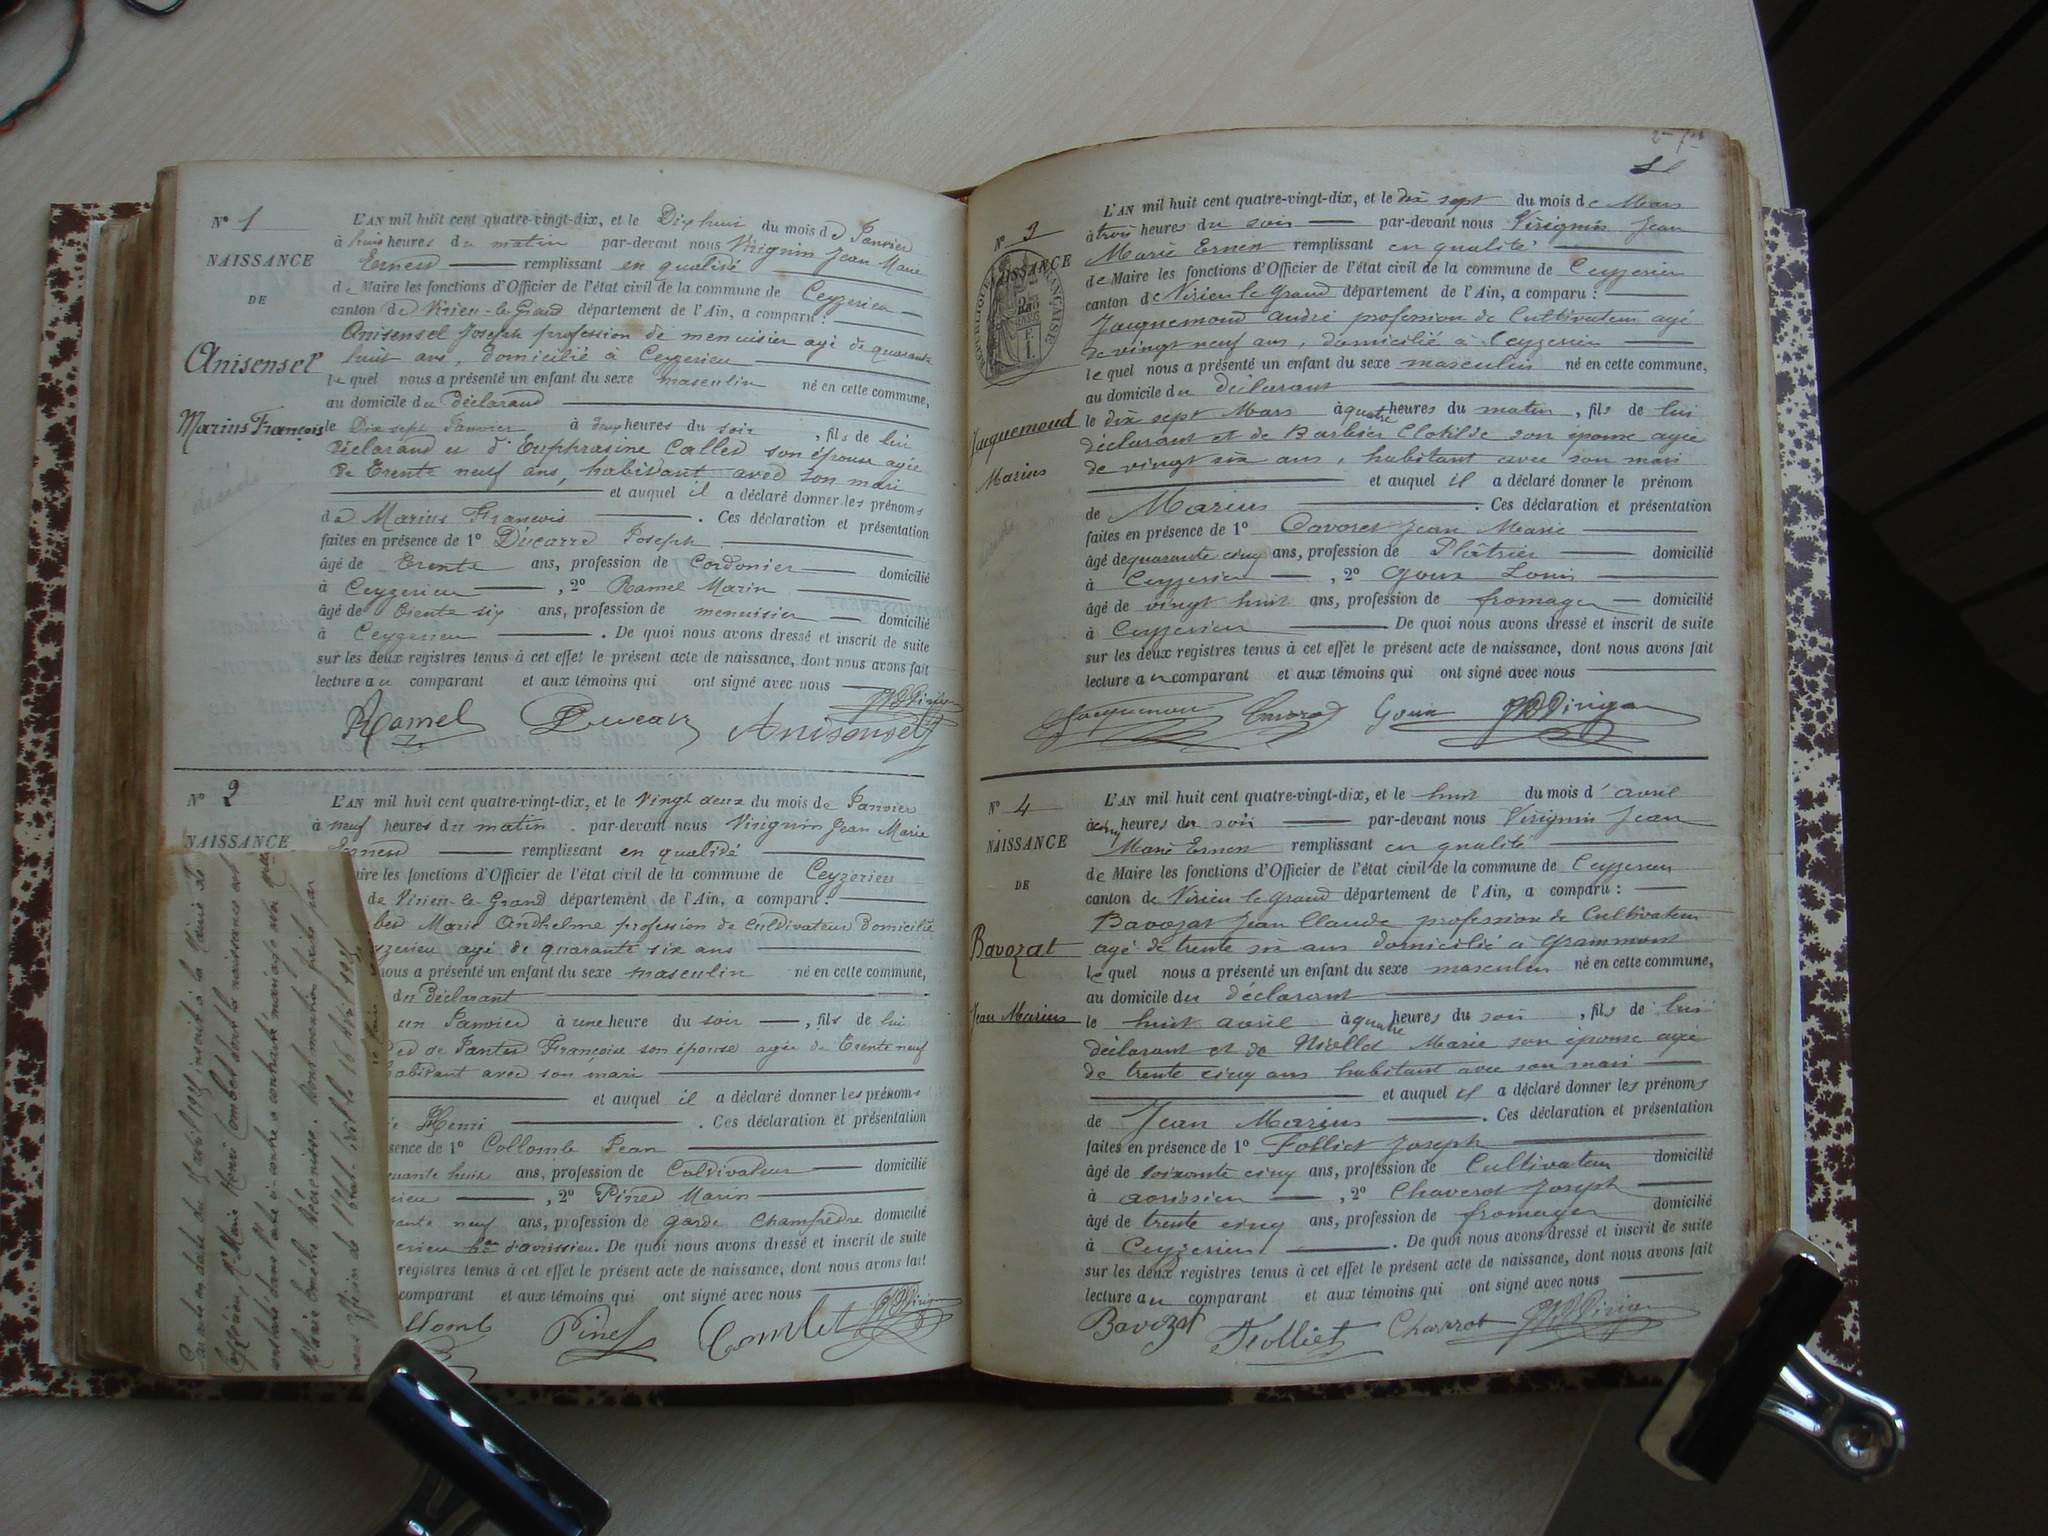 N° 1
NAISSANCE
DE
Anisensel
Marius François
décédé
L'AN mil huit cent quatre-vingt-dix, et le Dix huit du mois de Janvier
à huit heures du matin par-devant nous Virignin Jean Marie
Ernest remplissant en qualité
de Maire les fonctions d'Officier de l'état civil de la commune de Ceyzerieu
canton de Virieu-le-Grand département de l'Ain, a comparu :
Anisensel Joseph profession de menuisier agé de quarante
huit ans, domicilié à Ceyzerieu
lequel nous a présenté un enfant du sexe masculin né en cette commune,
au domicile du Déclarant
le Dix sept Janvier à deux heures du soir, fils de lui
déclarant et d'Euphrasine Callet son épouse agée
de Trente neuf ans, habitant avec son mari
et auquel il a déclaré donner les prénoms
de Marius François. Ces déclaration et présentation
faites en présence de 1° Ducarre Joseph
âgé de Trente ans, profession de Cordonier domicilié
à Ceyzerieu, 2° Ramel Marin
âgé de Trente six ans, profession de menuisier domicilié
à Ceyzerieu. De quoi nous avons dressé et inscrit de suite
sur les deux registres tenus à cet effet le présent acte de naissance, dont nous avons fait
lecture au comparant et aux témoins qui ont signé avec nous
Ramel Ducarre Anisensel
N° 2
NAISSANCE
L'AN mil huit cent quatre-vingt-dix, et le Vingt deux du mois de Janvier
à neuf heures du matin par-devant nous Virignin Jean Marie
Ernest remplissant en qualité
aire les fonctions d'Officier de l'état civil de la commune de Ceyzerieu
de Virieu-le-Grand département de l'Ain, a comparu :
bet Marie Anthelme profession de Cultivateur domicilié
yzerieu agé de quarante six ans
nous a présenté un enfant du sexe masculin né en cette commune,
du Déclarant
un Janvier à une heure du soir, fils de lui
et de Françoise son épouse agée de Trente neuf
habitant avec son mari
et auquel il a déclaré donner les prénoms
Henri. Ces déclaration et présentation
sence de 1° Collomb Jean
quante huit ans, profession de Cultivateur domicilié
rieu, 2° Pinet Marin
ante neuf ans, profession de garde Champêtre domicilié
erieu hau d'avrissieu. De quoi nous avons dressé et inscrit de suite
registres tenus à cet effet le présent acte de naissance, dont nous avons fait
comparant et aux témoins qui ont signé avec nous
llomb Pinet Combet
en date du avril inscrit à la Mairie de
Marie Henri Combet dont la naissance est
dans l'acte ci-contre a contracté mariage avec
Marie mention faite par
nous officier de l'état-civil le 16 avril
N° 3
NAISSANCE
RÉPUBLIQUE FRANÇAISE
Jacquemond
Marius
L'AN mil huit cent quatre-vingt-dix, et le dix sept du mois de Mars
à trois heures du soir par-devant nous Virignin Jean
Marie Ernest remplissant en qualité
de Maire les fonctions d'Officier de l'état civil de la commune de Ceyzerieu
canton de Virieu le Grand département de l'Ain, a comparu :
Jacquemond André profession de Cultivateur agé
de vingt neuf ans, domicilié à Ceyzerieu
lequel nous a présenté un enfant du sexe masculin né en cette commune,
au domicile du déclarant
le dix sept Mars à quatre heures du matin, fils de lui
déclarant et de Barbier Clotilde son épouse agée
de vingt six ans, habitant avec son mari
et auquel il a déclaré donner le prénom
de Marius. Ces déclaration et présentation
faites en présence de 1° Cavoret Jean Marie
âgé de quarante cinq ans, profession de Plâtrier domicilié
à Ceyzerieu, 2° Goux Louis
âgé de vingt huit ans, profession de fromager domicilié
à Ceyzerieu. De quoi nous avons dressé et inscrit de suite
sur les deux registres tenus à cet effet le présent acte de naissance, dont nous avons fait
lecture au comparant et aux témoins qui ont signé avec nous
Jacquemond Cavoret Goux
N° 4
NAISSANCE
DE
Bavozat
Jean Marius
L'AN mil huit cent quatre-vingt-dix, et le huit du mois d'avril
à cinq heures du soir par-devant nous Virignin Jean
Marie Ernest remplissant en qualité
de Maire les fonctions d'Officier de l'état civil de la commune de Ceyzerieu
canton de Virieu le Grand département de l'Ain, a comparu :
Bavozat Jean Claude profession de Cultivateur
agé de trente six ans domicilié à Grammont
lequel nous a présenté un enfant du sexe masculin né en cette commune,
au domicile du déclarant
le huit avril à quatre heures du soir, fils de lui
déclarant et de Marie son épouse agée
de trente cinq ans habitant avec son mari
et auquel il a déclaré donner les prénoms
de Jean Marius. Ces déclaration et présentation
faites en présence de 1° Folliet Joseph
âgé de soixante cinq ans, profession de Cultivateur domicilié
à avrissieu, 2° Chaverot Joseph
âgé de trente cinq ans, profession de fromager domicilié
à Ceyzerieu. De quoi nous avons dressé et inscrit de suite
sur les deux registres tenus à cet effet le présent acte de naissance, dont nous avons fait
lecture au comparant et aux témoins qui ont signé avec nous
Bavozat Folliet Chaverot